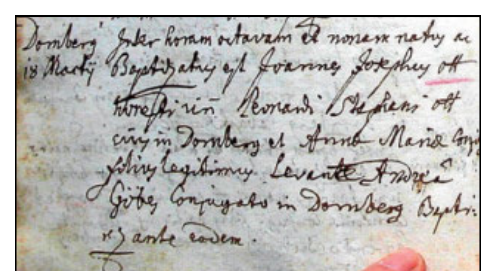 Domberg Inter horam octavam et nonam natus ac
18 Martij Baptizatus est Joannes Josephus ott
honesti viri Leonardi Stephani ott
civis in Domberg et Annæ Mariæ Conju
filius legitimus Levante Andreâ
Conjugato in Domberg Bapti-
ante eodem.